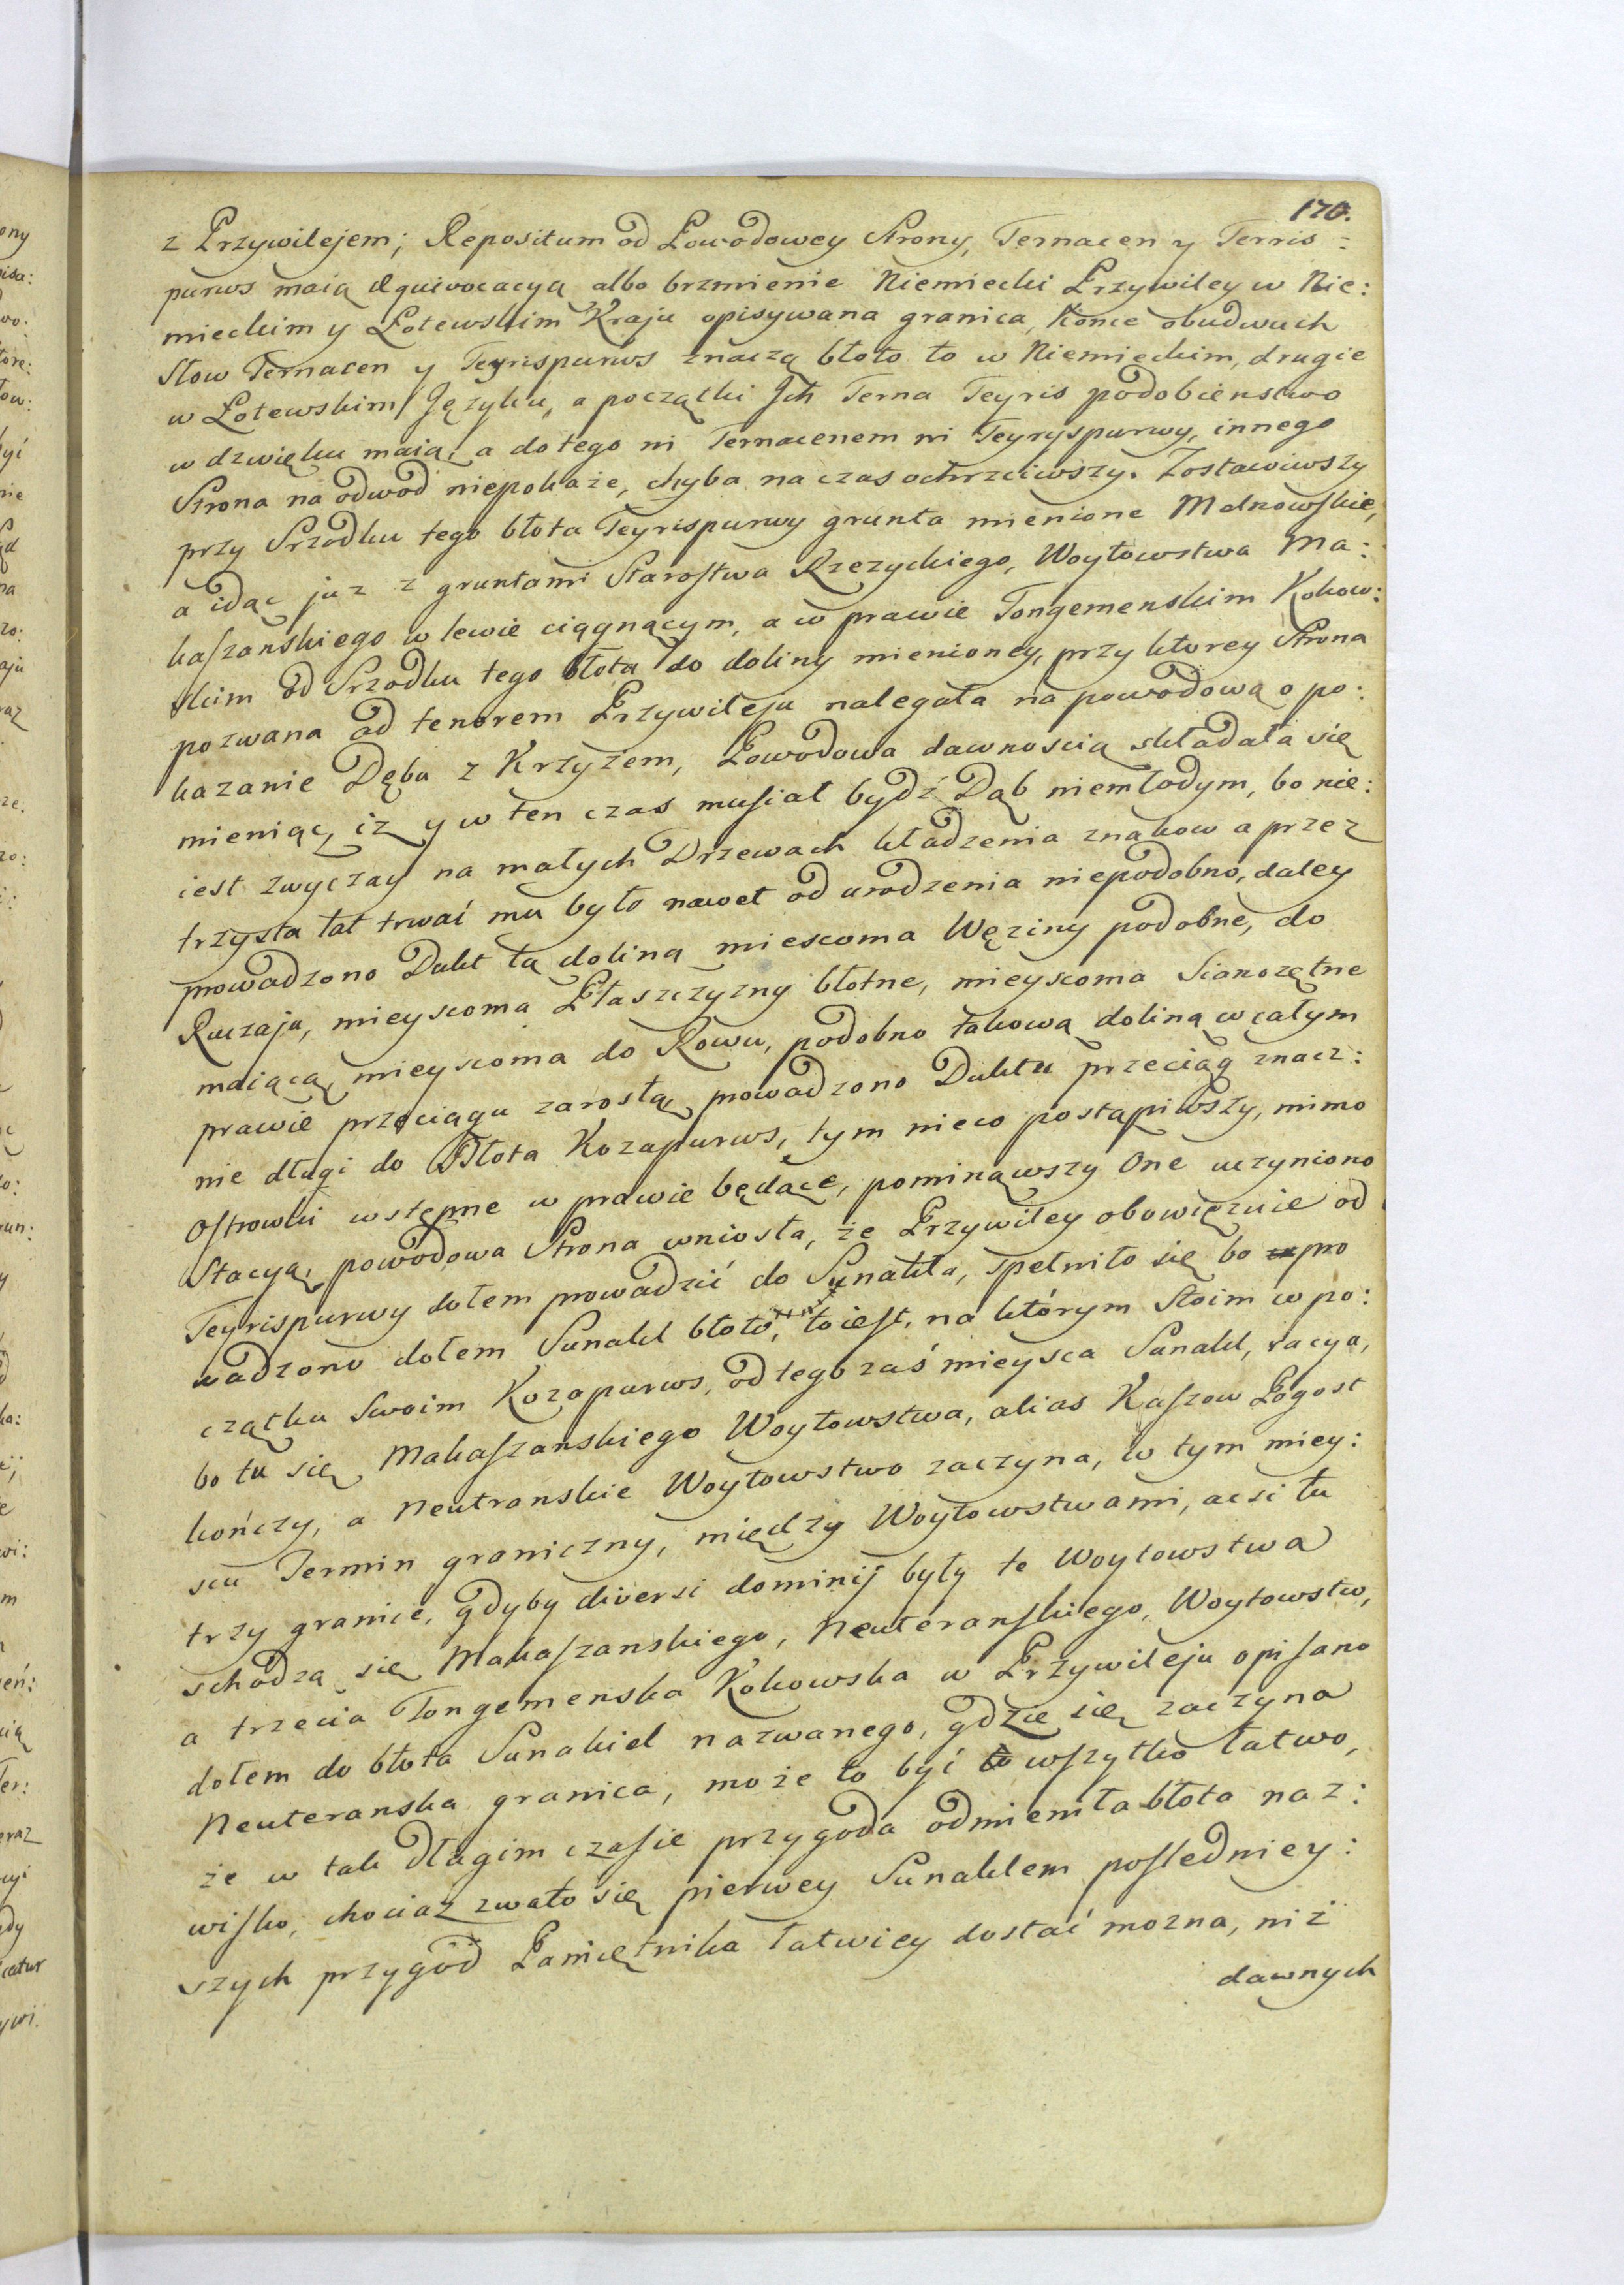 170.
z Przywilejem; Repositum od Powodowey Strony, Ternacen y Terris =
purws maią Æquivocacyą albo brzmienie Niemiecki Przywiley w Nie:
mieckim y Łotewskim Kraju opisywana granica, Konce obudwuch
Słow Ternacen y Teyrispurws znaczą błoto to w Niemieckim, drugie
w Łotewskim Języku, a początki Ich Terna Teyris podobienstwo
w dzwięku maią, a do tego ni Ternacenem ni Teyryspurwy, innego
Strona na odwod niepokaże, chyba na czas ochrzciwszy. Zostawiwszy
przy Srzodku tego błota Teyrispurwy grunta mienione Melnowskie,
a idąc juz z gruntami Starostwa Rzezyckiego, Woytowstwa Ma:
kaszanskiego w lewie ciągnącym, a w prawie Tongemenskim Kokow:
skim od Srzodku tego błota do doliny mienioney, przy ktorey Strona
pozwana ad tenorem Przywileju nalegała na powodową o po:
kazanie Dęba z Krzyżem, Powodowa dawnoscią składała się
mieniąc, iz y w ten czas musiał bydź Dąb niemłodym, bo nie:
iest zwyczay na małych Drzewach kładzenia znakow a przez
trzysta lat trwać mu było nawet od urodzenia niepodobno, daley
prowadzono Dukt tą doliną miescoma Węziny podobne, do
Ruczaju, mieyscoma Płaszczyzny błotne, mieyscoma Sianozętne
maiącą, mieyscoma do Rowu, podobno takową doliną w całym
prawie przeciągu zarosłą, prowadzono Duktu przeciąg znacz:
nie długi do Błota Kozapurws, tym nieco postąpiwszy, mimo
Ostrowki wstępne w prawie będące, pominąwszy One uczyniono
Stacyą, powodowa Strona wniosła, że Przywiley obowięzuie od
Teyrispurwy dołem prowadzić do Synakla, spełniło się bo pro
wadzono dołem Sunakl błoto, toiest, na którym Stoim w po:
czątku Swoim Kozapurws, od tego zaś mieysca Sunakl, racya,
bo tu się Makaszanskiego Woytowstwa, alias Kaszow Pogost
kończy, a Neutranskie Woytowstwo zaczyna, w tym miey:
scu Termin graniczny, między Woytowstwami, acsi tu
trzy granice, gdyby diversi dominij były te Woytowstwa
schodzą się Makaszanskiego, Neuteranskiego, Woytowstw,
a trzecia Tongemenska Kokowska w Przywileju opisano
dołem do błota Sunakiel nazwanego, gdzie się zaczyna
Neuteranska granica, może to być to wszytko łatwo,
że w tak długim czasie przygoda odmieniła błota naz:
wisko, chociaz zwało się pierwey Sunaklem posledniey:
szych przygód Pamiętnika łatwiey dostać mozna, niż
dawnych